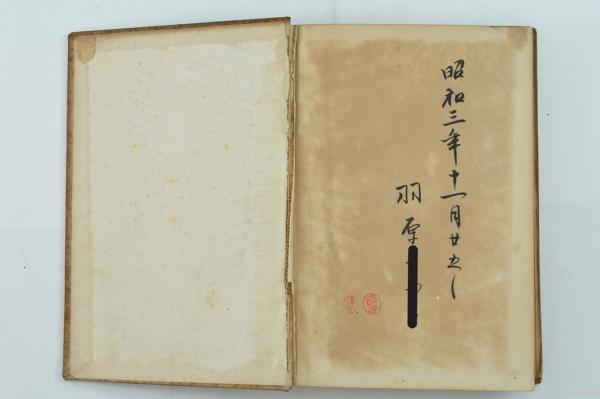 昭和三年十一月廿五
羽原